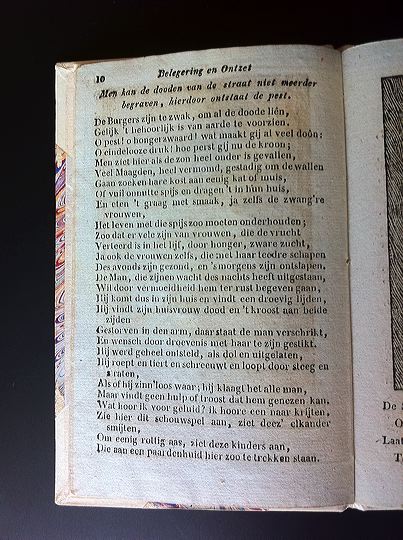 10
Belegering en Ontzet
Men kan de dooden van de straat niet meerder
begraven, hierdoor ontstaat de pest.
De Burgers zijn te zwak, om al de doode liên,
Gelijk 't behoorlijk is van aarde te voorzien.
O pest! o hongerzwaard! wat maakt gij al veel doôn;
O eindelooze druk! hoe perst gij nu de kroon;
Men ziet hier als de zon heel onder is gevallen,
Veel Maagden, heel vermomd, gestadig om de wallen
Gaan zoeken hare kost aan eenig kat of muis,
Of vuil onnutte spijs en dragen 't in hun huis,
En eten 't graag met smaak, ja zelfs de zwang're
vrouwen,
Het leven met die spijs zoo moeten onderhouden;
Zoo dat er vele zijn van vrouwen, die de vrucht
Verteerd is in het lijf, door honger, zware zucht,
Ja ook de vrouwen zelfs, die met haar teedre schapen
Des avonds zijn gezond, en 's morgens zijn ontslapen.
De Man, die zijnen wacht des nachts heeft uitgestaan,
Wil door vermoeidheid hem ter rust begeven gaan,
Hij komt dus in zijn huis en vindt een droevig lijden,
Hij vindt zijn huisvrouw dood en 't kroost aan beide
zijden
Gestorven in den arm, daar staat de man verschrikt,
En wensch door droevenis met haar te zijn gestikt.
Hij werd geheel ontsteld, als dol en uitgelaten,
Hij roept en tiert en schreeuwt en loopt door steeg en
straten,
Als of hij zinn'loos waar; hij klaagt het alle man,
Maar vindt geen hulp of troost dat hem genezen kan.
Wat hoor ik voor geluid? ik hoore een naar krijten,
Zie hier dit schouwspel aan, ziet deez' elkander
smijten,
Om eenig rottig aas, ziet deze kinders aan,
Die aan een paardenhuid hier zoo te trekken staan.
De
O
Laat
T